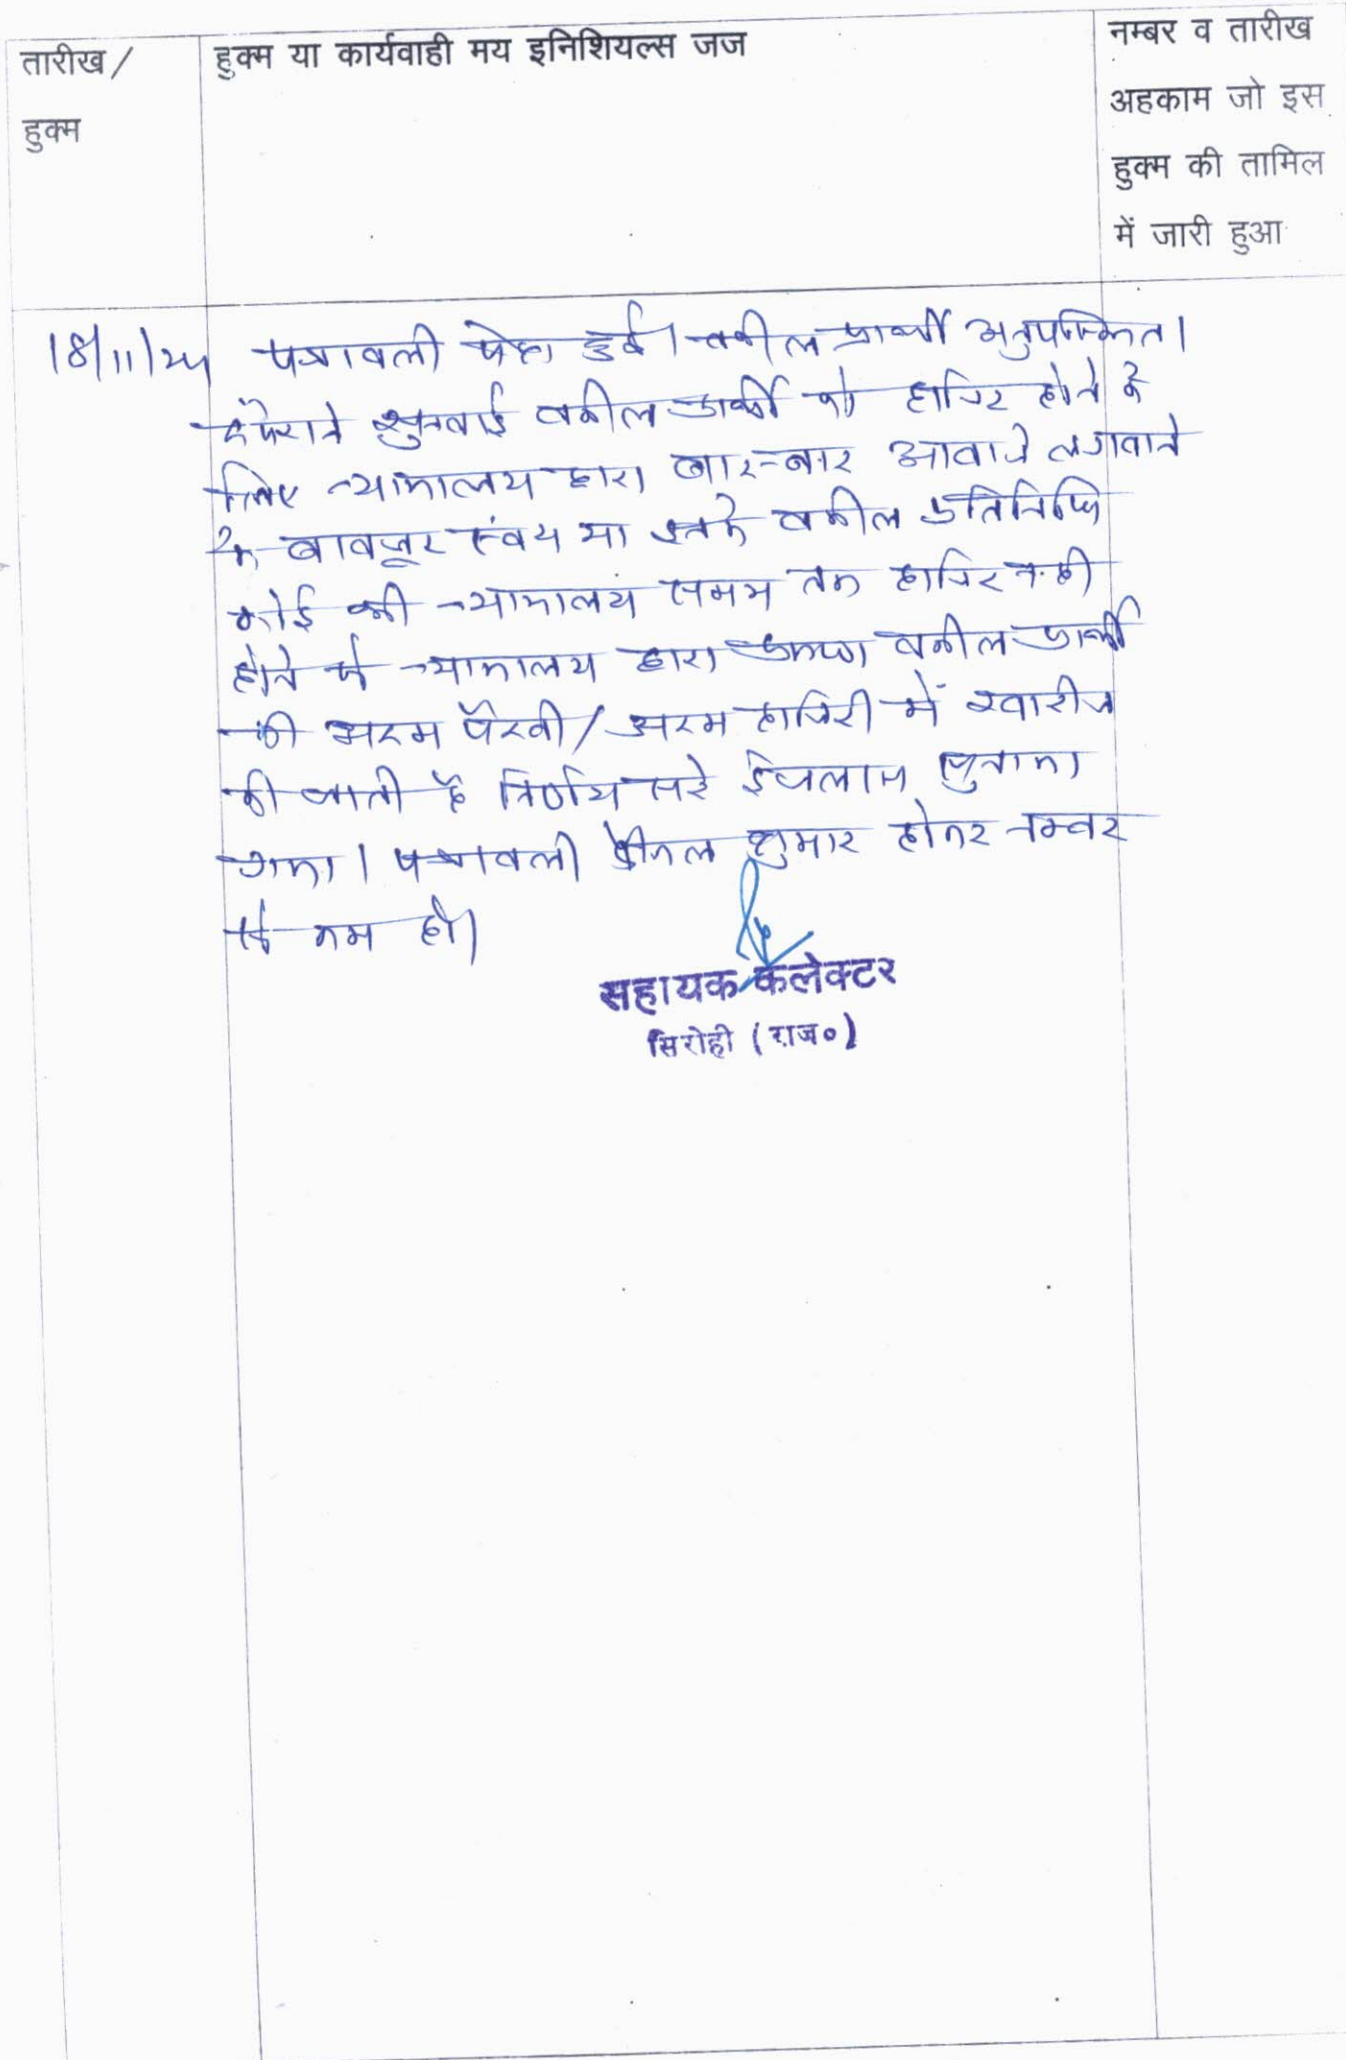 तारीख/
हुक्म
हुक्म या कार्यवाही मय इनिशियल्स जज
नम्बर व तारीख
अहकाम जो इस
हुक्म की तामिल
में जारी हुआ
18/11/24 पत्रावली पेश हुई। वकील प्रार्थी अनुपस्थित।
दौराने सुनवाई वकील प्रार्थी को हाजिर होने के
लिए न्यायालय द्वारा बार-बार आवाजे लगवाने
के बावजूद स्वंय या उनके वकील प्रतिनिधि
कोई भी न्यायालय समय तक हाजिर नही
होने से न्यायालय द्वारा वकील प्रार्थी
की अदम पैरवी/अदम हाजिरी में खारीज
की जाती है निर्णय सरे ईजलास सुनाया
गया। पत्रावली फैसल शुमार होकर नम्बर
से कम हो।
सहायक कलेक्टर
सिरोही (राज०)